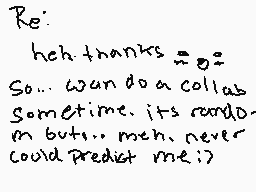 Re:
heh. thanks =o=
So... wan do a collab
sometime. its rando-
m but... meh. never
could predict me ;)